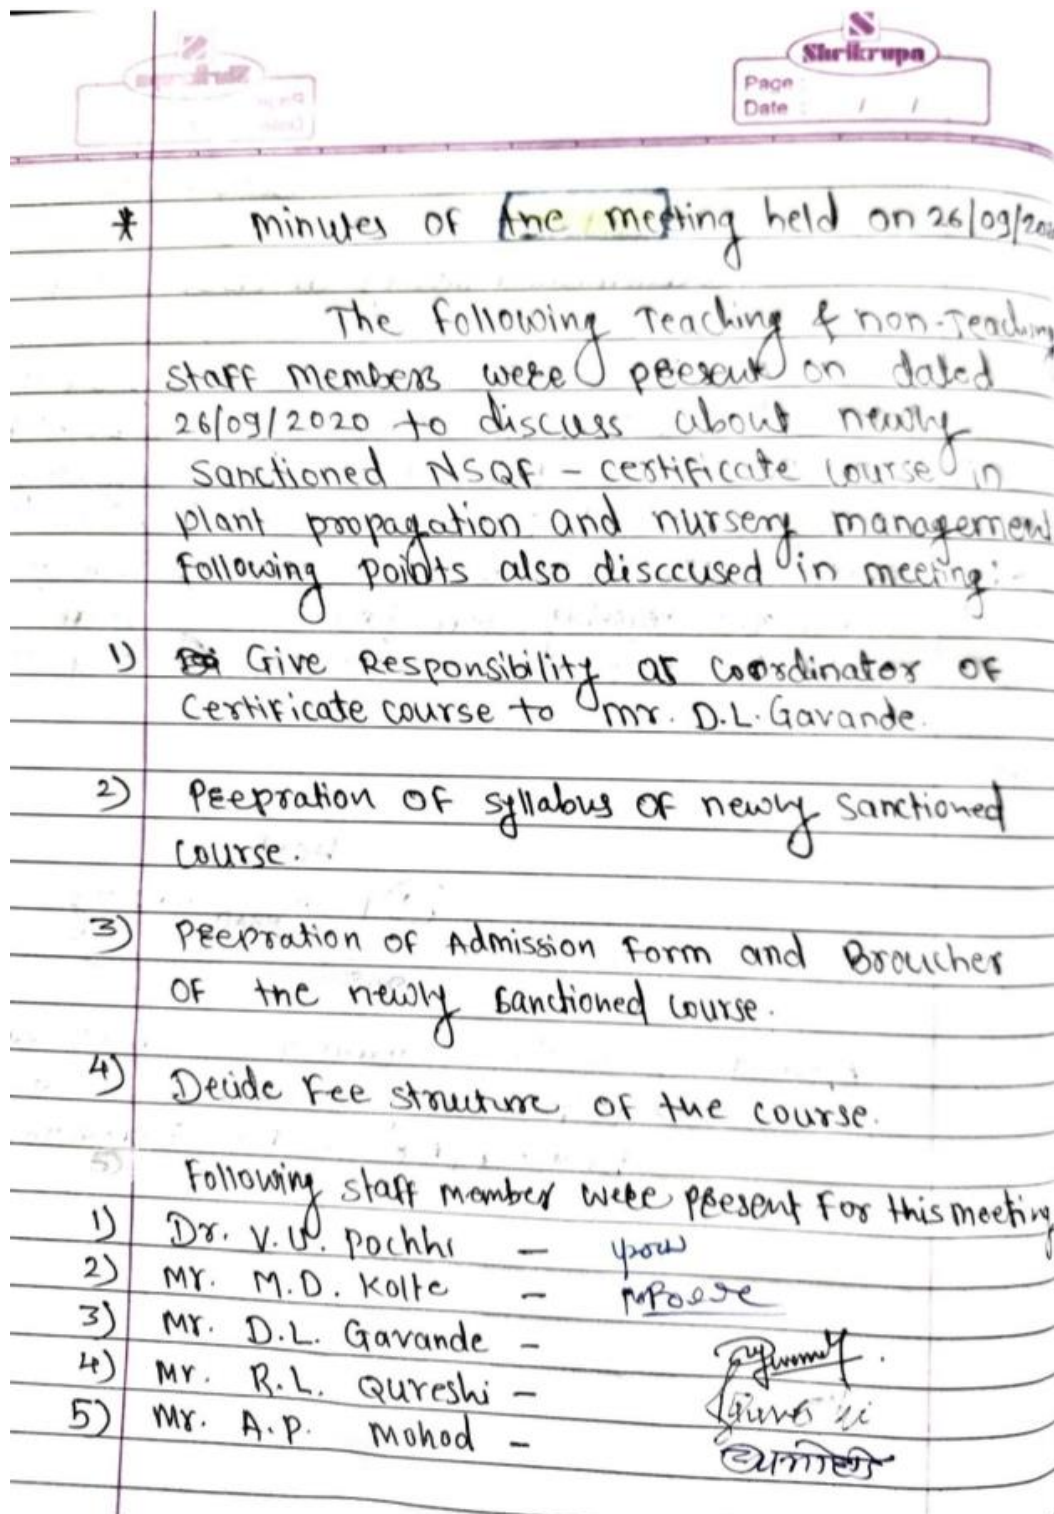 Shrikrupa
Page :
Date : / /
* Minutes of the meeting held on 26/09/2020
The following Teaching & non-Teaching
staff members were present on dated
26/09/2020 to discuss about newly
Sanctioned NSQF - certificate course in
plant propagation and nursery management
Following points also disccused in meeting:-
1) Give Responsibility as Coordinator of
Certificate course to Mr. D.L. Gavande.
2) Preepration of syllabus of newly sanctioned
course.
3) Preepration of Admission form and Broucher
of the newly sanctioned course.
4) Decide Fee structure of the course.
5)
Following staff member were present for this meeting
1) Dr. V.U. Pochhi -
2) Mr. M.D. Kolte -
3) Mr. D.L. Gavande -
4) Mr. R.L. Qureshi -
5) Mr. A.P. Mohod -